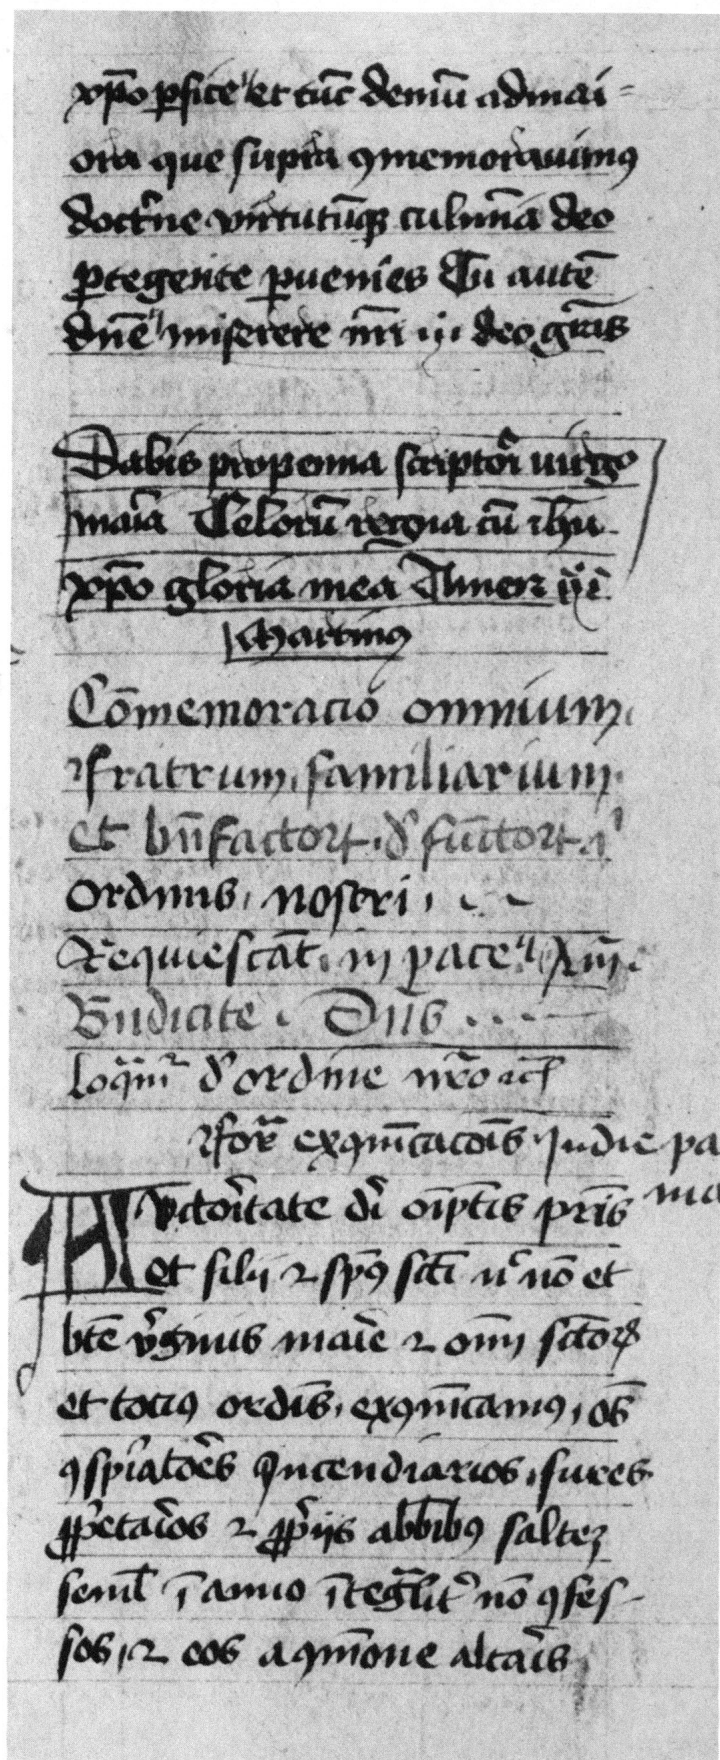 xp̄o ꝑfice et tūc demū ad mai-
ora que supra ꝯmemorauimꝰ
doctͥne virtutūqꝫ culmīa deo
ꝓtegente ꝑuenies Tu autē
dn̄e miserere nr̄i deo gr̄as
Dabis pro penna scriptori virgo
maria Celorū regna cū ihū
xp̄o gloria mea Amen
Martinꝰ
Cōmemoracio omnium
fratrum familiarium
et bn̄factorꝝ dͤfūctorꝝ
ordinis nostri
Requiescāt in pace Am̄
Bn̄dicite Dn̄s
loq̄mͬ dͤ ordine nr̄o
forᷓ exꝯmūcacōis In die pa
A Vctoritate dͥ oīpt̄is pr̄is ma
et filij ⁊ spūs scī nͨ nō et
bt̄e vͥginis marie ⁊ om̄i sctōrꝝ
et tociꝰ ordīs exꝯmūicamꝰ os̄
ꝯspiratōes Incendiarios fures
ꝓpetaͥos ⁊ ꝓpͥiis abbībꝰ saltez
seml̄ ī anno īteg̃litͬ nō ꝯfes-
sos ⁊ eos a ꝯmūione altaīs